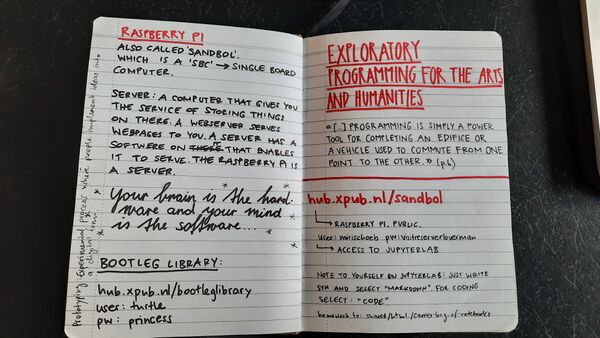 RASPBERRY PI
ALSO CALLED 'SANDBOL'.
WHICH IS A 'SBC' → SINGLE BOARD
COMPUTER.
SERVER: A COMPUTER THAT GIVES YOU
THE SERVICE OF STORING THINGS
ON THERE. A WEBSERVER SERVES
WEBPAGES TO YOU. A SERVER HAS A
SOFTWARE ON THAT ENABLES
IT TO SERVE. THE RASPBERRY PI IS
A SERVER.
Your brain is the hard-
ware and your mind
is the software...
BOOTLEG LIBRARY:
hub.xpub.nl/bootleglibrary
user: turtle
pw: princess
Prototyping: Experimental process where people implement ideas into
a digital form
EXPLORATORY
PROGRAMMING FOR THE ARTS
AND HUMANITIES
« [..] PROGRAMMING IS SIMPLY A POWER
TOOL FOR COMPLETING AN EDIFICE OR
A VEHICLE USED TO COMMUTE FROM ONE
POINT TO THE OTHER. » (p.6)
hub.xpub.nl/sandbol
→ RASPBERRY PI. PUBLIC.
user: mirischoeb pw:
→ ACCESS TO JUPYTERLAB
NOTE TO YOURSELF ON JUPYTERLAB: JUST WRITE
STH AND SELECT "MARKDOWN". FOR CODING
SELECT: "CODE"
homework to: shared/html/carrier-bag-of-notebooks